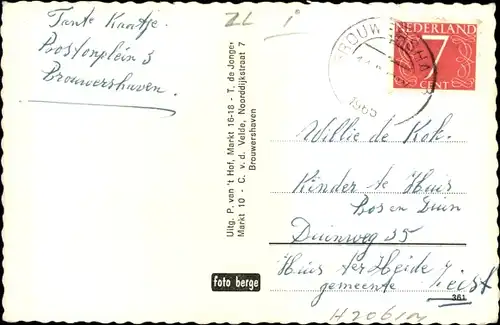 Tante Kaatje.
Bostonplein 3
Brouwershaven.
ZL
Uitg. P. van 't Hof, Markt 16-18 - T. de Jonge
Markt 10 - C. v.d. Velde, Noorddijkstraat 7
Brouwershaven
foto berge
BROUW
1965
NEDERLAND
7
CENT
Willie de Kok.
Kinder te Huis
Bos en Duin
Duinweg 35
Huis ter Heide
gemeente Zeist
361